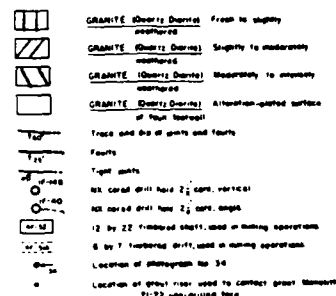 GRANITE (Quartz Diorite) Fresh to slightly
weathered
GRANITE (Quartz Diorite) Slightly to moderately
weathered
GRANITE (Quartz Diorite) Moderately to intensely
weathered
GRANITE (Quartz Diorite) Alteration-plated surface
of fault footwall
Trace and dip of joints and faults
Faults
Tight joints
NX cored drill hole 2 core, vertical
NX cored drill hole 2 core, angle
12 by 22 timbered shaft, used in mining operations
6 by 7 timbered drift, used in mining operations
Location of photograph No 34
34
Location of grout riser used to contact grout